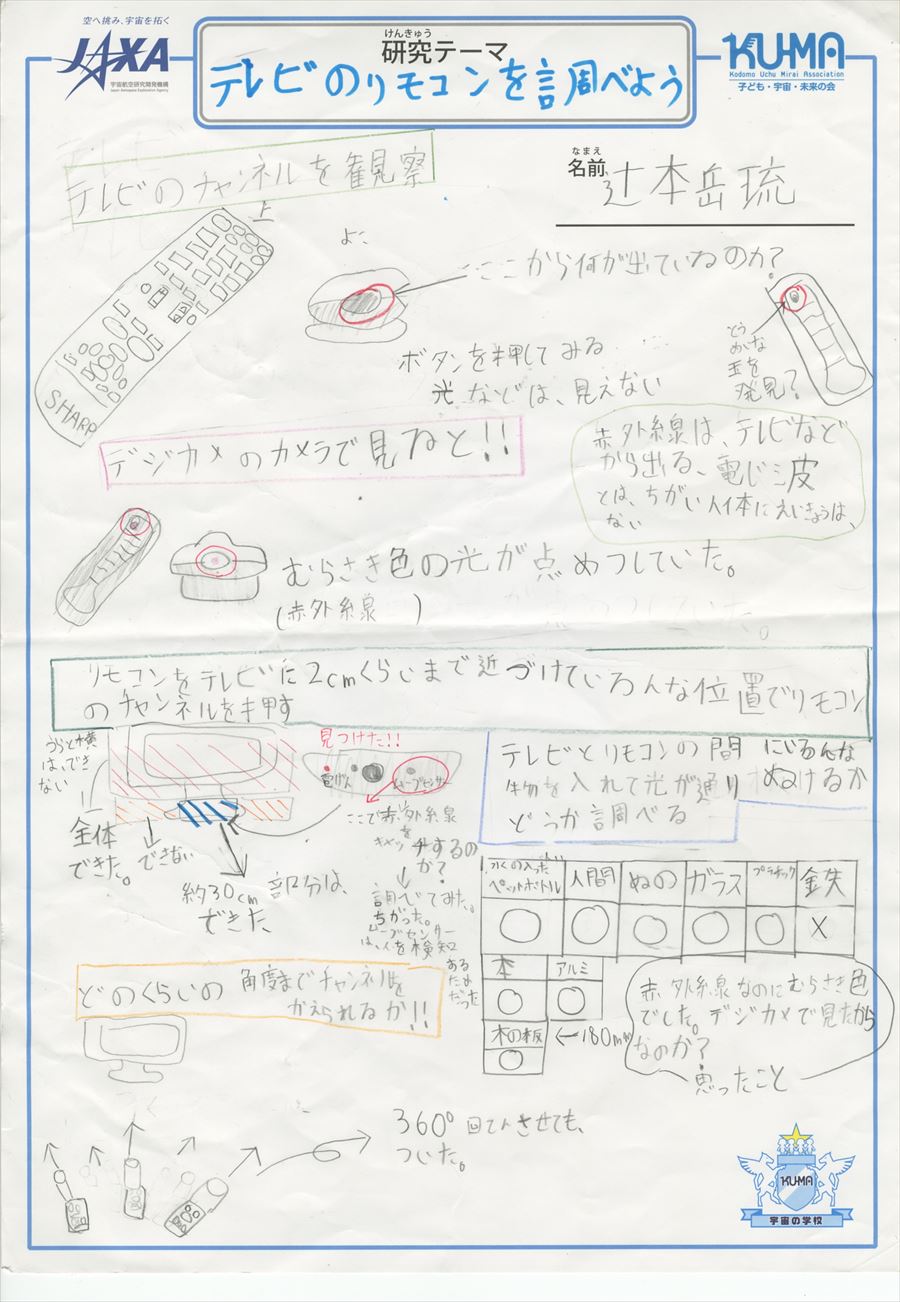 空へ挑み、宇宙を拓く
JAXA
宇宙航空研究開発機構
Japan Aerospace Exploration Agency
けんきゅう
研究テーマ
テレビのリモコンを調べよう
KU-MA
Kodomo Uchu Mirai Association
子ども・宇宙・未来の会
なまえ
名前
辻本岳琉
テレビのチャンネルを観察
上
よこ
ここから何が出ているのか?
SHARP
ボタンを押してみる
光などは、見えない
とう
めいな
玉を
発見?
デジカメのカメラで見ると!!
赤外線は、テレビなど
から出る、電じ波
とは、ちがい人体にえいきょうは、
ない
むらさき色の光が点めつしていた。
(赤外線 )
リモコンをテレビに2cmくらいまで近づけているんな位置でリモコン
のチャンネルを押す
うらと横
は、でき
ない
全体
できた。
できない
約30cm部分は、
できた
見つけた!!
電げん
ムーブセンサー
ここで赤外線
を
キャッチするの
か?
調べてみた。
ちがった。
ムーブセンター
は、人を検知
あるた
ためだった
テレビとリモコンの間にいろんな
物を入れて光が通りぬけるか
どうか調べる
水の入った
ペットボトル
人間
ぬの
ガラス
プラチック
鉄
○ ○ ○ ○ ○ ×
本 アルミ
○ ○
木の板
○
←180mm
どのくらいの角度までチャンネルを
かえられるか!!
赤外線なのにむらさき色
でした。デジカメで見たから
なのか?
思ったこと
360°回てんさせても、
ついた。
KU-MA
宇宙の学校